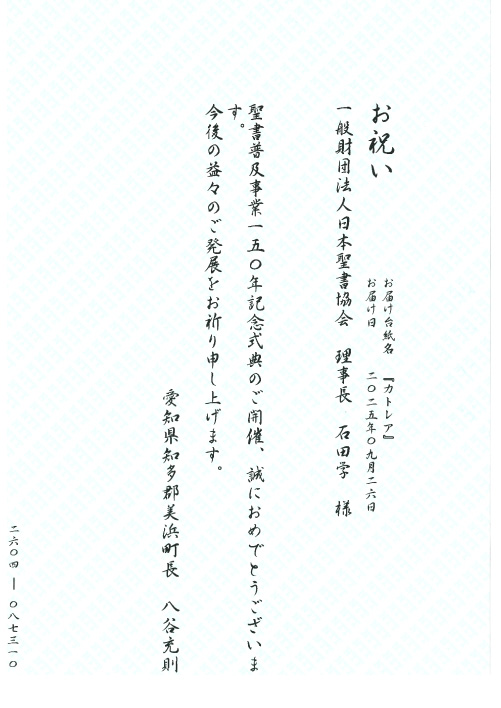 お祝い
お届け台紙名 『カトレア』
お届け日 二〇二五年〇九月二六日
一般財団法人日本聖書協会 理事長 石田学 様
聖書普及事業一五〇年記念式典のご開催、誠におめでとうございま
す。
今後の益々のご発展をお祈り申し上げます。
愛知県知多郡美浜町長 八谷充則
二六〇四―〇八七三一〇